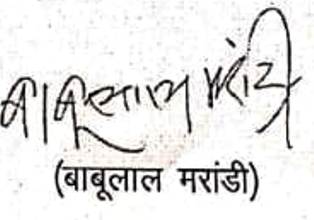 बाबुलाल मरांडी
(बाबूलाल मरांडी)